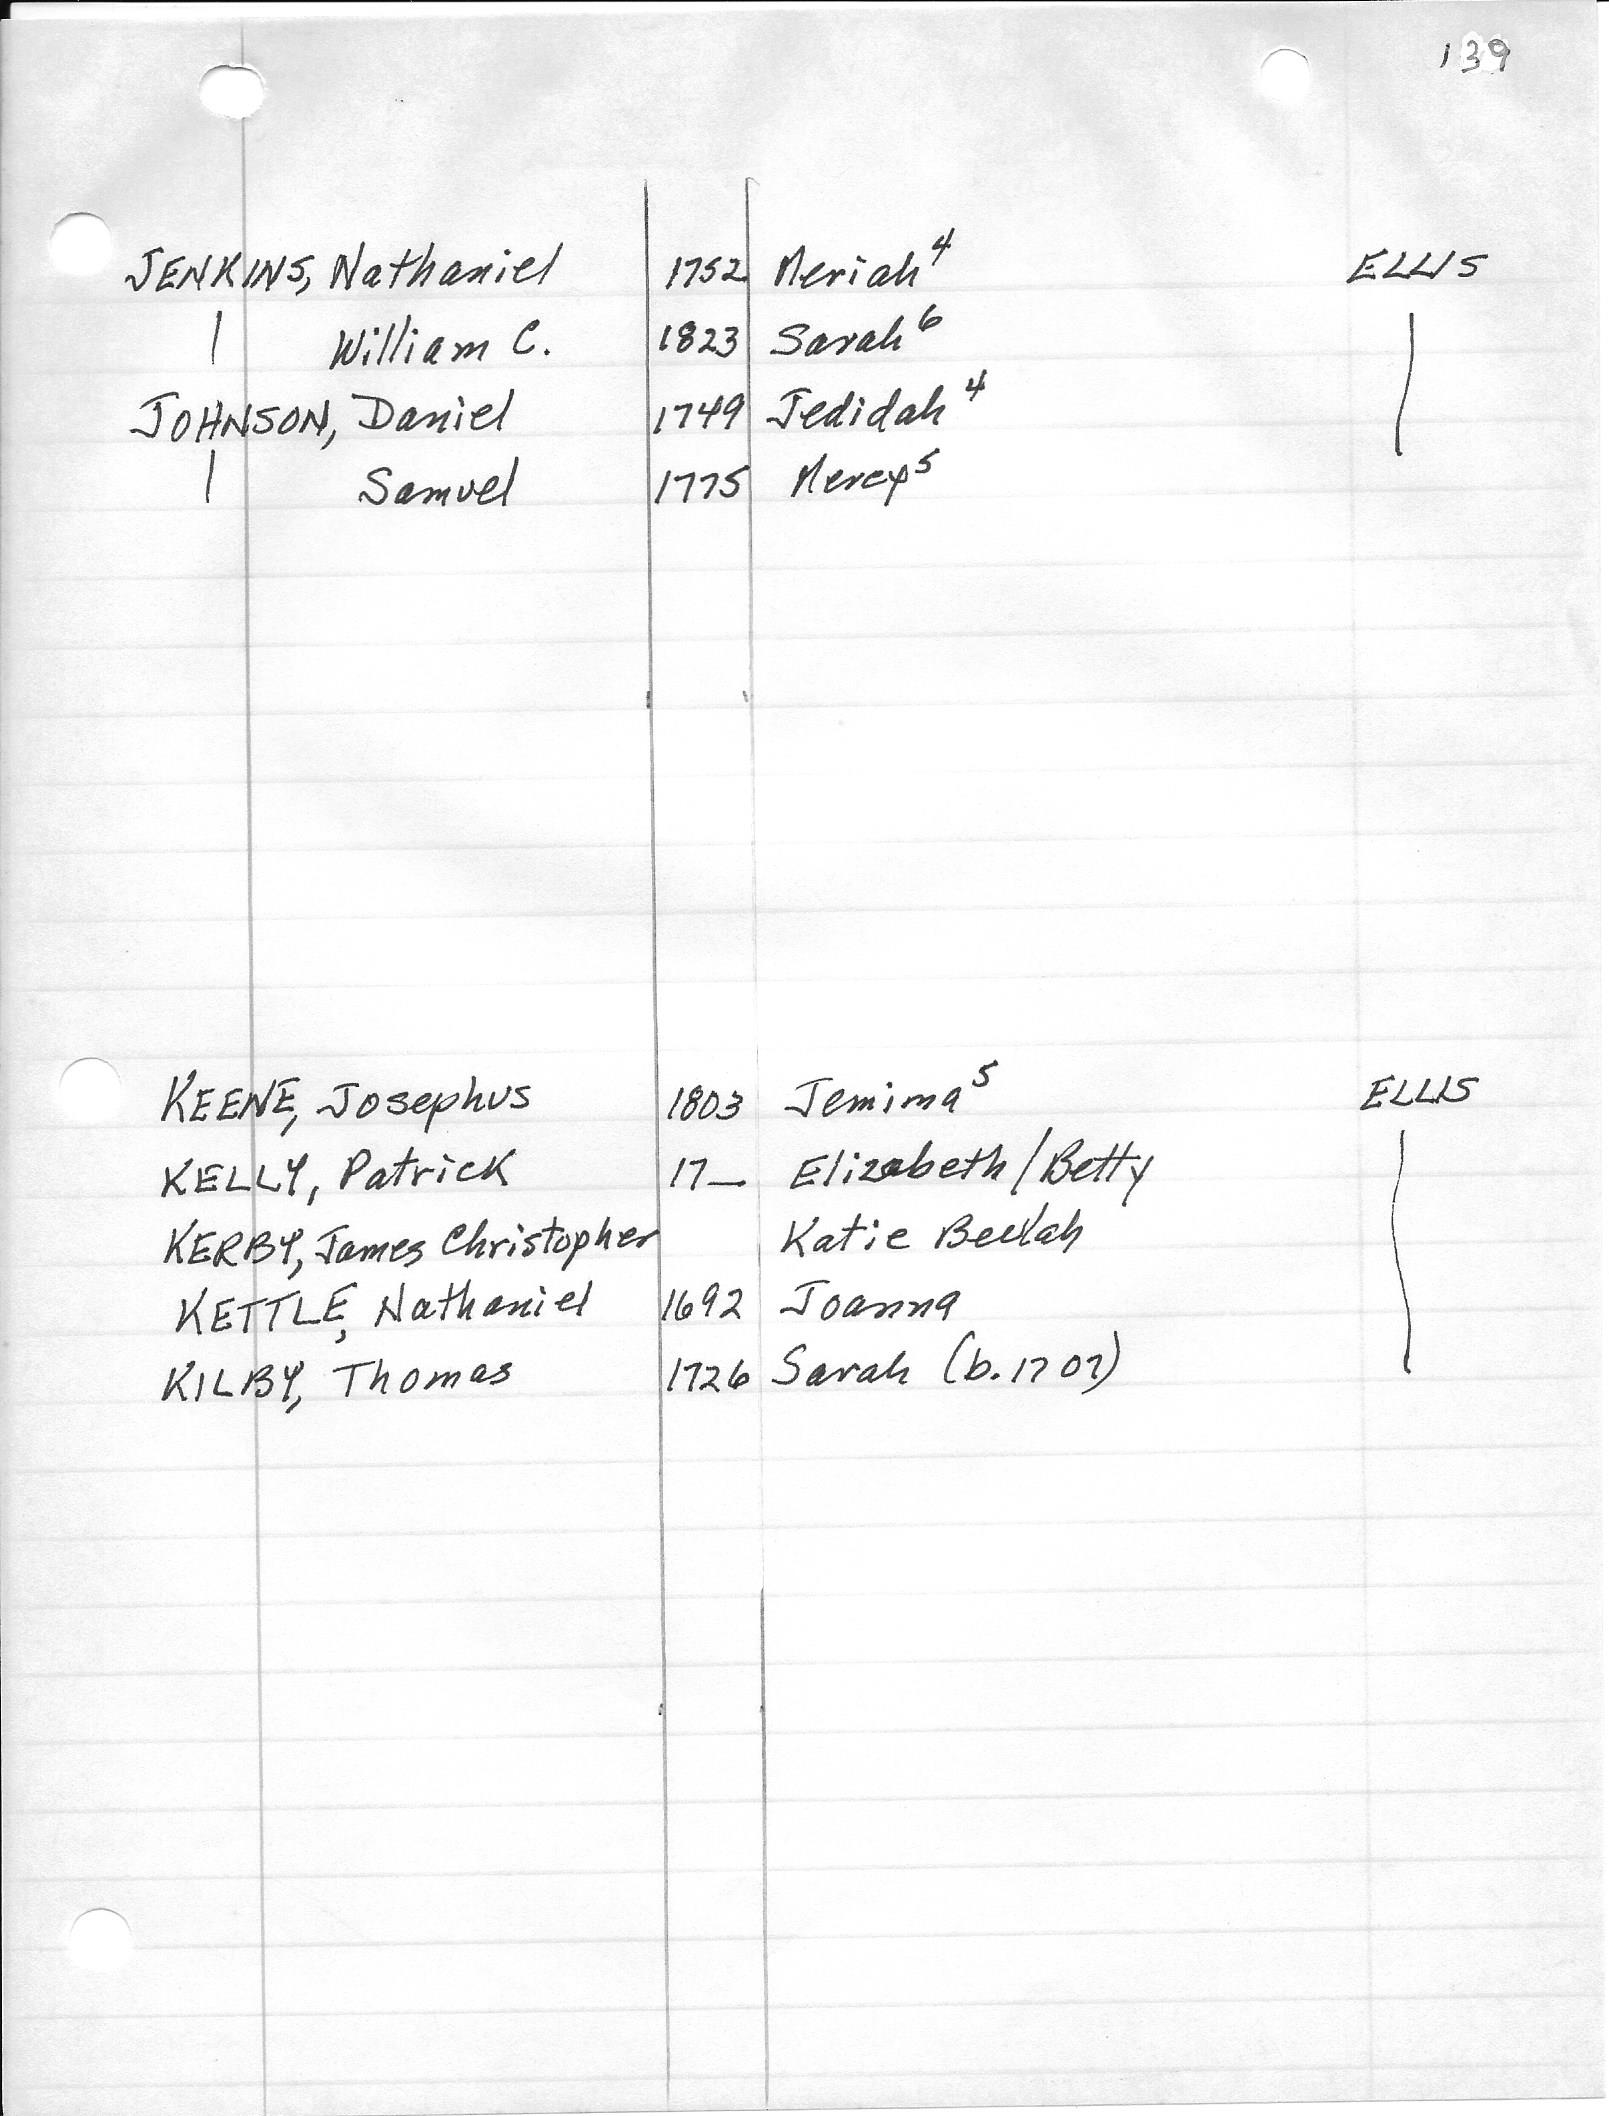 139
JENKINS, Nathaniel 1752 Meriah⁴ ELLIS
| William C. 1823 Sarah⁶ |
JOHNSON, Daniel 1749 Jedidah⁴
| Samuel 1775 Mercy⁵
KEENE, Josephus 1803 Jemima⁵ ELLIS
KELLY, Patrick 17_ Elizabeth/Betty |
KERBY, James Christopher Katie Beulah
KETTLE, Nathaniel 1692 Joanna
KILBY, Thomas 1726 Sarah (b.1707)